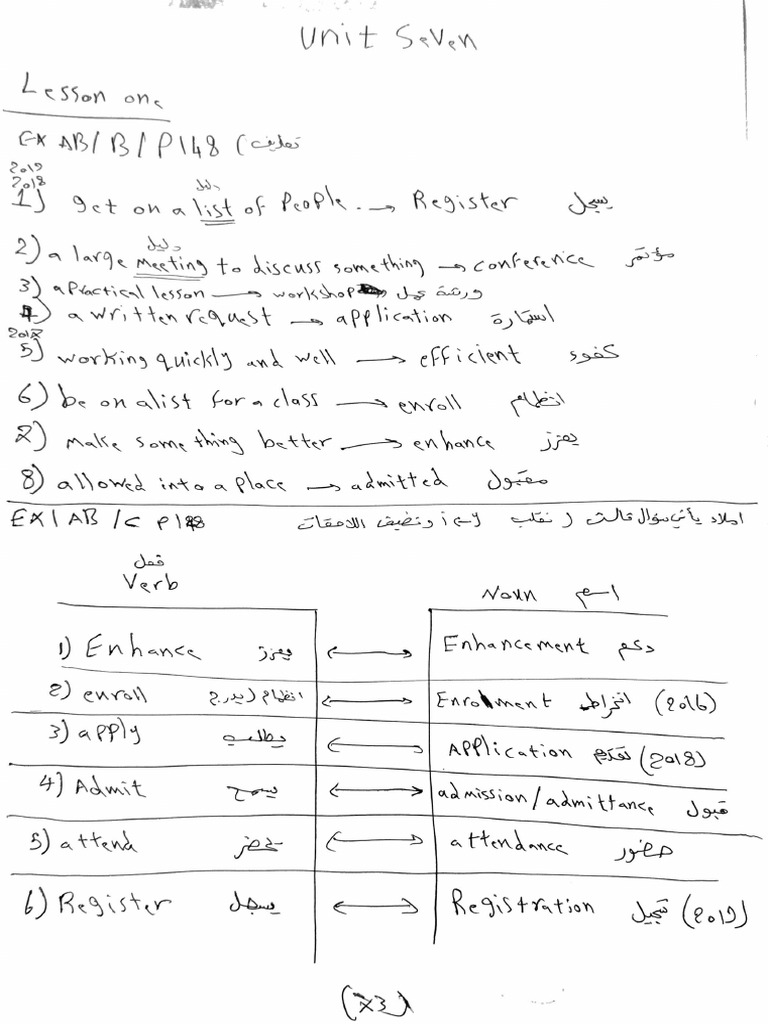 Unit Seven
Lesson one
EX AB/B/P148 (تعاريف
2019
2018 دليل
1) get on a list of People. → Register يسجل
دليل
2) a large meeting to discuss something → conference مؤتمر
3) a Practical lesson → workshop ورشة عمل
4) a written request → application استمارة
2017
5) working quickly and well → efficient كفوء
6) be on alist for a class → enroll انظمام
7) make some thing better → enhance يعزز
8) allowed into a place → admitted مقبول
EX/AB/C P148 املاء يأتي سؤال ثالث نقلب ونضيف اللاحقات
فعل
Verb Noun اسم
1) Enhance يعزز ↔ Enhancement دعم
2) enroll انظمام (يدرج ↔ Enrolment انخراط (2016)
3) apply يطلب ↔ Application تقديم (2018)
4) Admit يسمح ↔ admission/admittance قبول
5) attend يحضر ↔ attendance حضور
6) Register يسجل ↔ Registration تسجيل (2019)
(73)